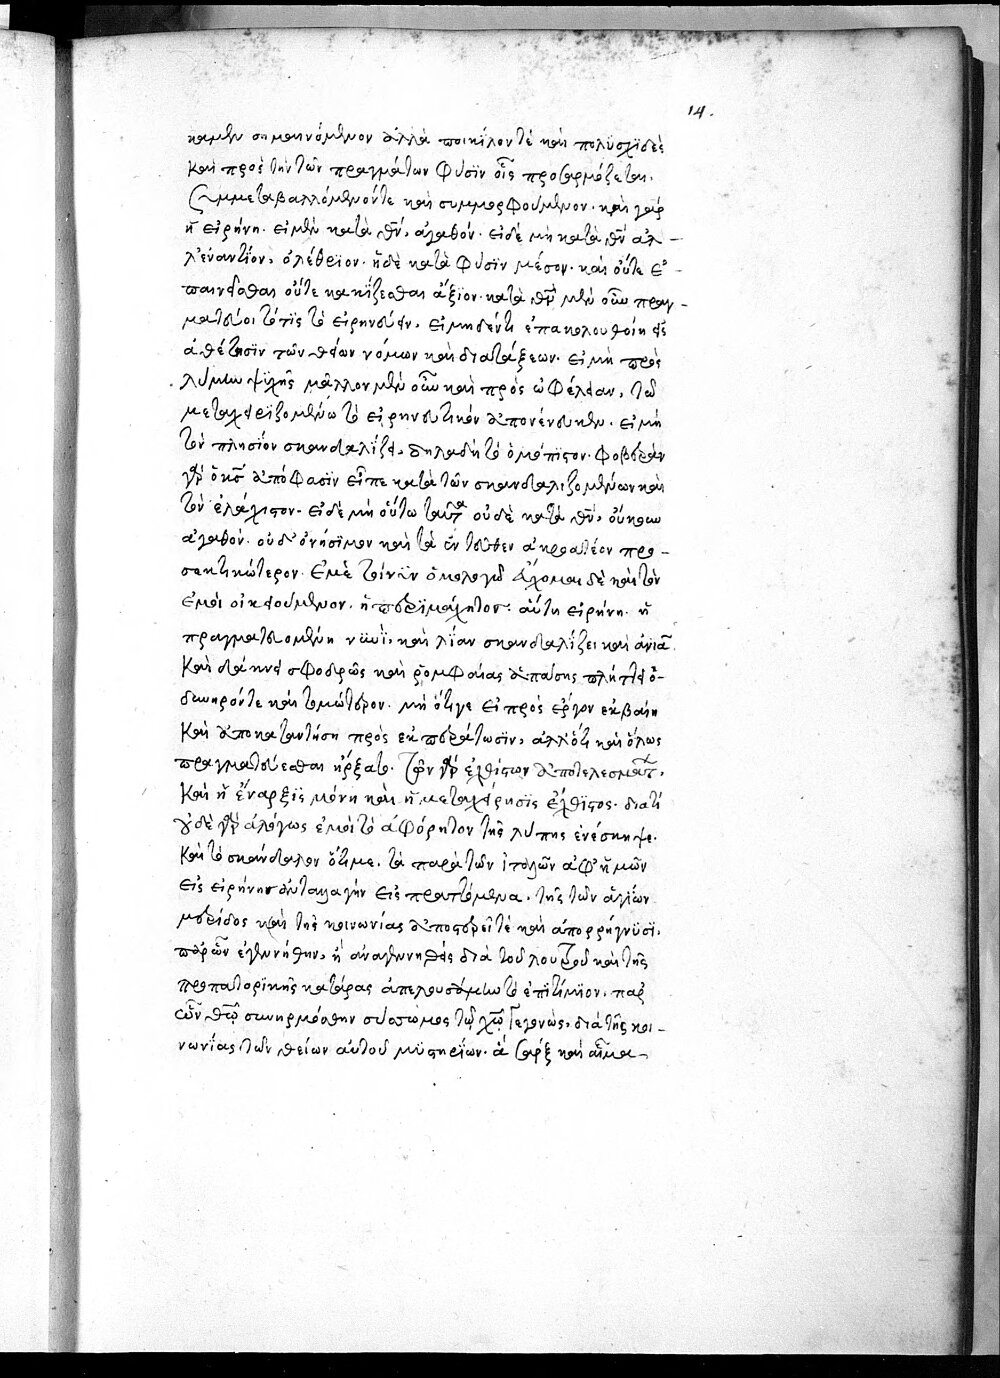 14.
καμὲν σημαινόμενον ἀλλὰ ποικίλον τὲ καὶ πολυσχιδὲς
καὶ πρὸς τὴν τῶν πραγμάτων φύσϊν οἷς προσαρμόζεται.
συμμεταβαλλόμενόντε καὶ συμμορφούμενον. καὶ γὰρ
ἡ εἰρήνη. εἰ μὲν κατὰ θν, ἀγαθόν. εἰ δὲ μὴ κατὰ θν ἀλ-
λ' ἐναντίον, ὀλέθριον. ἡ δὲ κατὰ φύσϊν μέσον. καὶ οὔτε ἐ-
παινεῖσθαι οὔτε κακίζεσθαι ἄξϊον. κατὰ θν μὲν οὖν πραγ-
ματεύοιτό τϊς τὸ εἰρηνεύειν, εἰ μηδέν τι ἐπακολουθοίη εἰς
ἀθέτησϊν τῶν θείων νόμων καὶ διατάξεων. εἰ μὴ πρὸς
λύμην ψϋχῆς μᾶλλον μὲν οὖν καὶ πρὸς ὠφέλειαν, τῶ
μεταχειρϊζομένω τὸ εἰρηνευτικὸν ἀπονένευκεν. εἰ μὴ
τὸν πλησίον σκανδαλίζει, δηλαδὴ τὸ ὁμόπιστον. φοβερὰν
γὰρ ὁ κς ἀπόφασϊν εἶπε κατὰ τῶν σκανδαλιζομένων καὶ
τὸν ἐλάχιστον. εἰ δὲ μὴ οὕτω ταῦτα οὐδὲ κατὰ θν, οὔκουν
ἀγαθόν. οὐδ' ὀνήσϊμον καὶ τὰ ἐντεῦθεν ἀκροατέον προ-
σεκτικώτερον. Ἐμὲ τοίνϋν ὁμολογῶ ἄχθομαι δὲ καὶ τὸν
ἐμοὶ οἰκειούμενον. ἡ περϊμάχητος αὕτη εἰρήνη. ἡ
πραγματευομένη νϋνὶ, καὶ λίαν σκανδαλίζει καὶ ἀνιᾶ
καὶ διάκνει σφοδρῶς καὶ ῥομφαίας ἁπάσης πλήττει ὀ-
δυνηρόντε καὶ τομώτερον. μὴ ὅτιγε εἰ πρὸς ἔργον ἐκβαίη
καὶ ἀποκαταντήση πρὸς ἐκπεράτωσϊν, ἀλλ' ὅτι καὶ ὅλως
πραγματεύεσθαι ἤρξατο. τῶν γὰρ ἐλθίστων ἀποτελεσμάτων,
καὶ ἡ ἔναρξϊς μόνη καὶ ἡ μεταχείρησϊς ἔχθϊστος. διατί
οὐδὲ γὰρ ἀλόγως ἐμοὶ τὸ ἀφόρητον τῆς λύπης ἐνέσκηψε.
καὶ τὸ σκάνδαλον ὅτι με, τὰ παρὰ τῶν ἰταλῶν ἀφ' ἡμῶν
εἰς εἰρήνης ἀνταλλαγὴν εἰσπραττόμενα, τῆς τῶν ἁγίων
μερίδος καὶ τῆς κοινωνίας ἀποστερεῖ τὲ καὶ ἀπορρήγνϋσϊ.
παρ' ὧν ἐγεννήθην, ἢ ἀναγεννηθεὶς διὰ τοῦ λουτροῦ καὶ τῆς
προπατορϊκῆς κατάρας ἀπελουσάμην τὸ ἐπϊτίμϊον, παρ'
ὧν θῶ συνηρμόσθην σύσσωμος τῷ χῶ γεγονὼς, διὰ τῆς κοι-
νωνίας τῶν θείων αὐτοῦ μϋστηρίων. ἁ σὰρξ καὶ αἷμα-